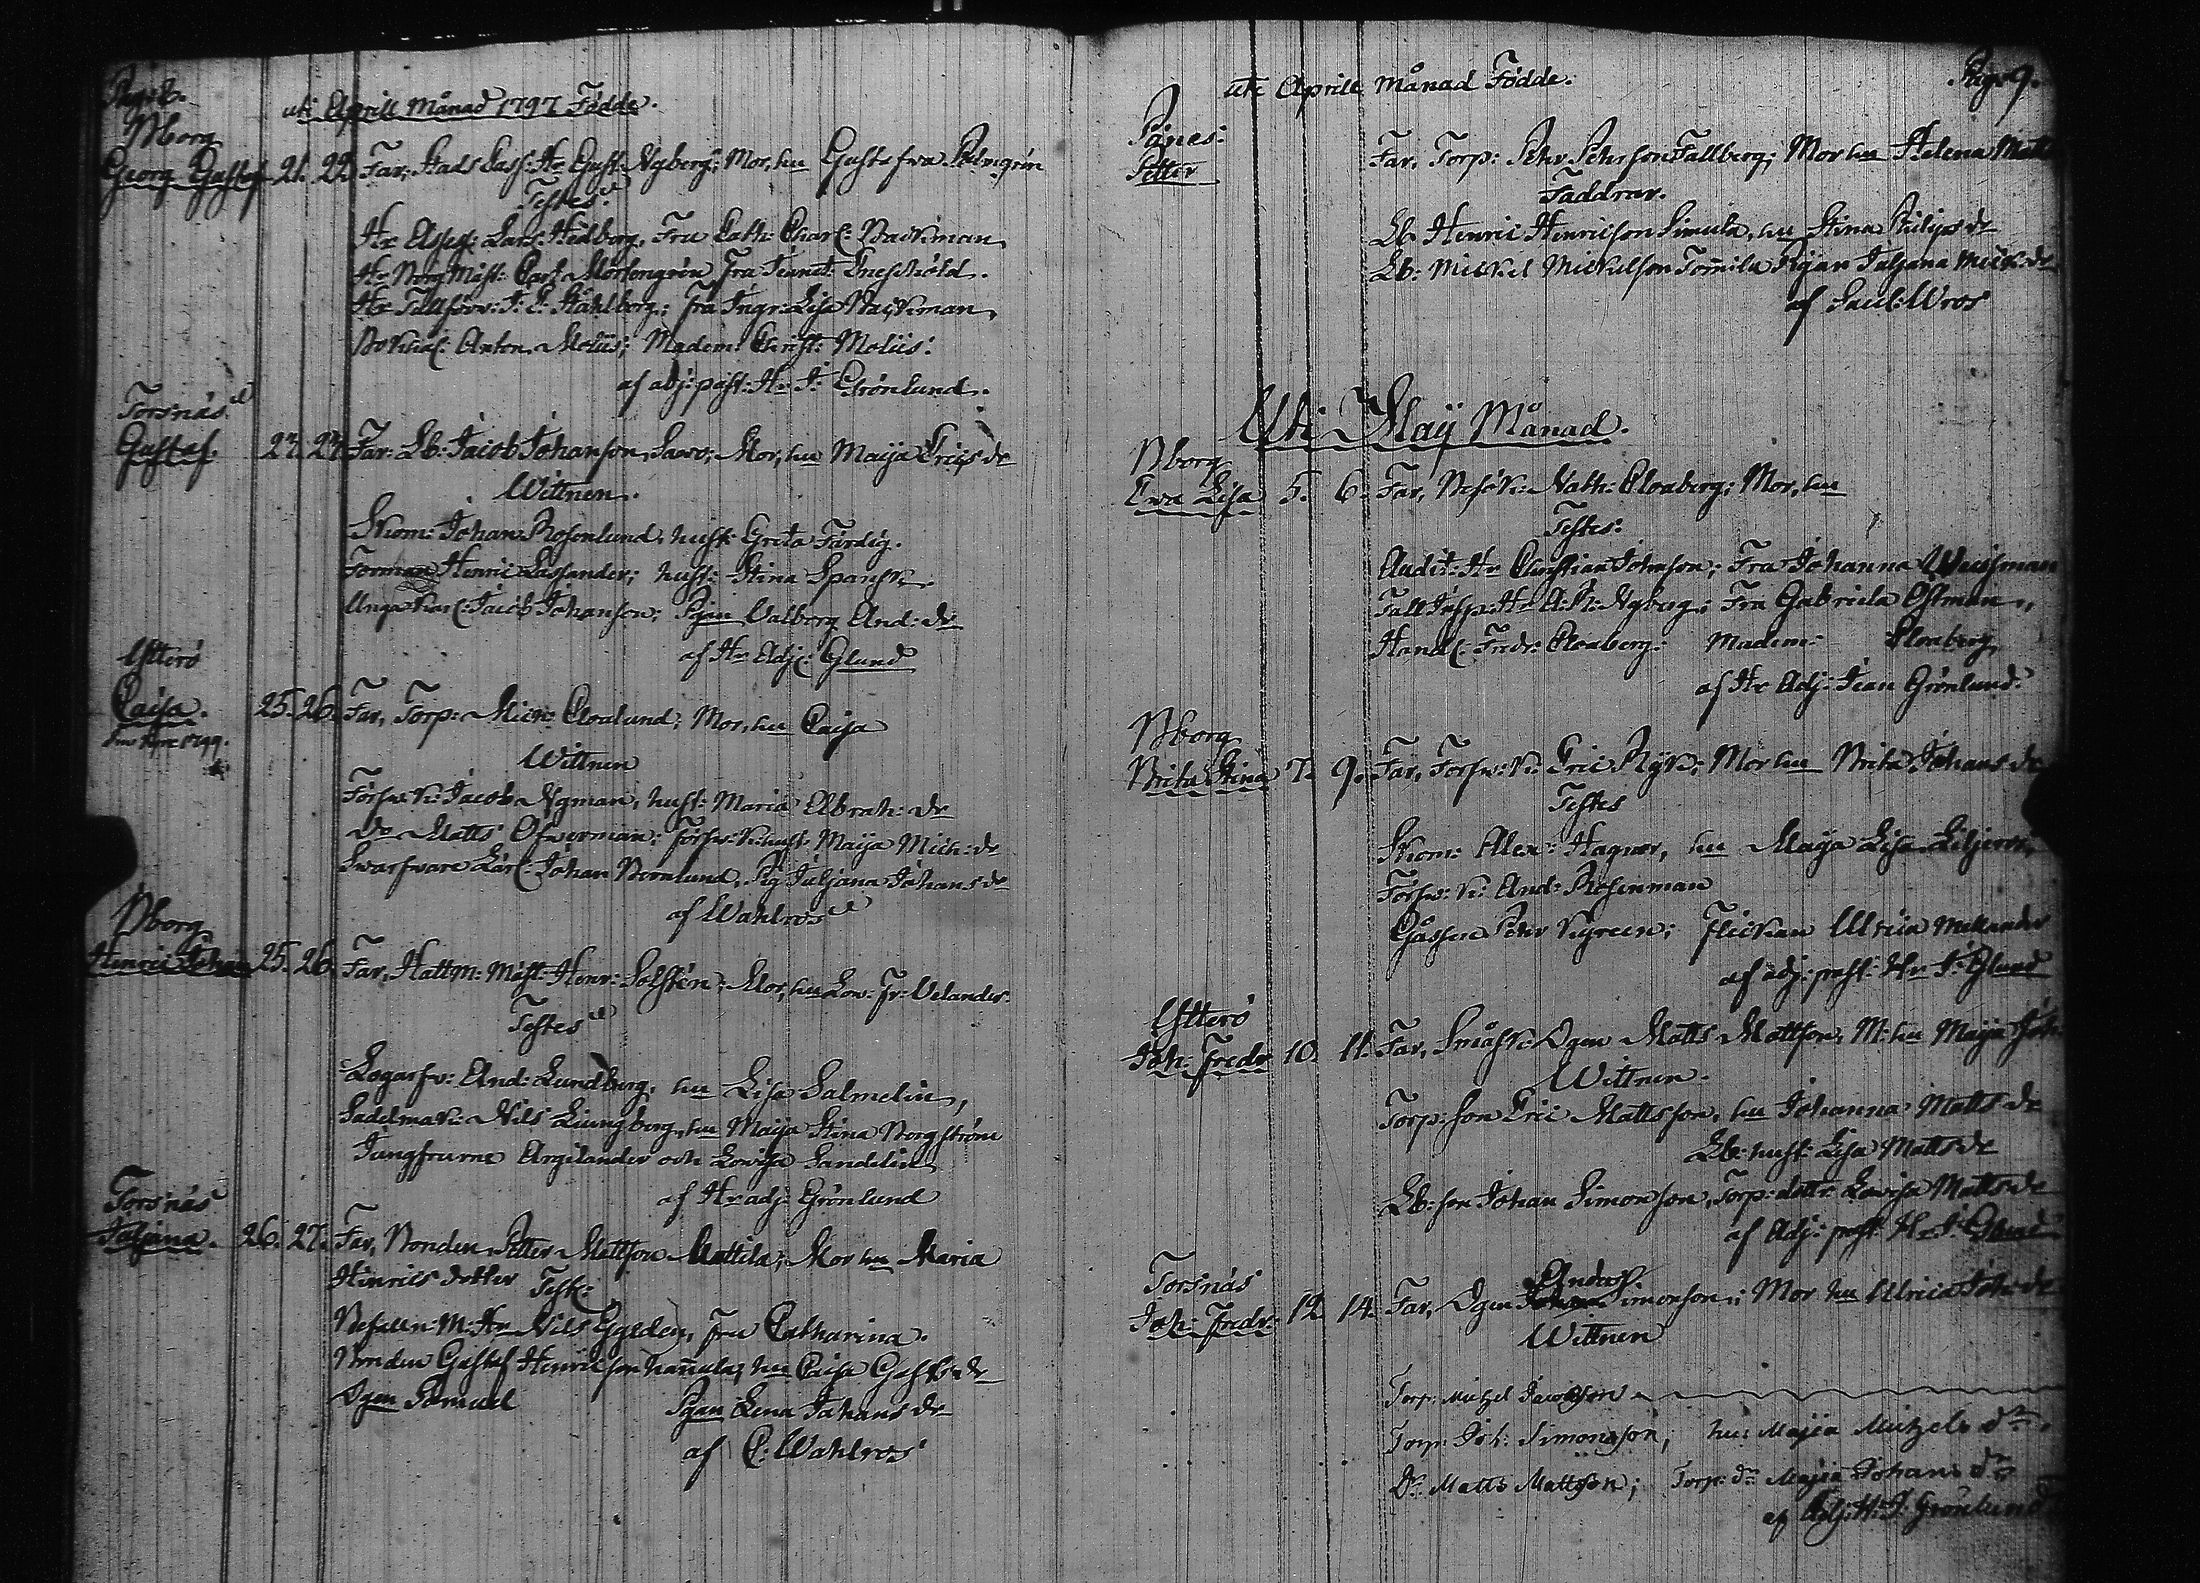 Pag: 8.
uti Aprill Månad 1797 Födde.
Bborg
Georg Gustaf 21. 22. Far, Stads Cass: Hr Gust: Nyberg; Mor, hu Gustafva Palmgrén
Testes:
Hr Assess: Lars Hedborg, Fru Cath: Charl: Backman
Hr Borg Mäst: Carl Mörtengrén Fru Jeanet:
Hr Tullförv: J: C: Ståhlberg; Fru Ingr: Lisa Backman,
Bokhål: Anton Moliis; Madem: Christ: Moliis:
af adj: past: Hr J: Grönlund.
Torsnäs
Gustaf. 23. 23. Far: Lb: Jacob Johanson Savo; Mor, hu Maija Erics dr
Wittnen.
Skom: Johan Rosenlund, hust: Greta Färdig.
Forman Henric Lassander; hust: Stina Spansk.
Unga Karl: Jacob Johanson; Pgan Valborg And: dr
af Hr Adj: Glund
Ytterö
Caisa. 25. 26. Far, Torp: Mich: Cloalund; Mor, hu Caisa
1799.
Wittnen
Försv: K: Jacob Nyman, hust: Maria Abrah: dr
Do Matts Öfverman; försv: K: hust: Maija Mich: dr
Swarfvare Lärl: Johan Bernlund, Pig Juljana Johans dr
af Wahlros
Bborg
Henric Johan 25. 26. Far, Hattm: Mäst: Henr: Solstén; Mor, hu Lov: Fr: Velander.
Testes
Logarfv: And: Lundberg, hu Lisa Salmelin,
Sadelmak: Nils Liungberg, hu Maija Stina Borgström
Jungfrurne Argilander och Lovisa Sandelin
af Hr adj: Grönlund
Torsnäs
Juljana. 26. 27. Far, Bonden Petter Mattson Mattila; Mor hu Maria
Hinrics dotter Test:
Befalln: M: Hr Nils Gylden, fru Catharina.
Bonden Gustaf Henricson hannula, hu Caisa Gustafs dr
Dgen Samuel Pgan Lena Johans dr
af C: Wahlros
uti Aprill Månad Födde. Pag: 9.
Pånes:
Petter Far, Torp: Pehr Pehrson Tallberg; Mor hu Helena Matts
Faddrar.
Lb: Henric Henricson Simula, hu Stina Philips dr
Lb: Mickel Mickelson Tommila Pigan Juljana Mick: dr
af Sacell: Wros
Uti Maij Månad.
Bborg
Ewa Lisa 5. 6. Far, Besök: Nath: Cloaberg; Mor, hu
Testes:
Audit: Hr Christian Johnson; Fru Johanna
Tull Insp: Hr A: R: Nyberg; Fru Gabriela Östman,
Handl: Fredr: Cloaberg: Madem: Cloaberg
af Hr Adj: Jean Grönlund.
Bborg
Brita Stina 7. 9. Far, Försv: K: Eric Ryk; Mor hu Brita Johans dr
Testes
Skom: Alex: Hagner, hu Maija Lisa
Försv: K: And: Rosenman
Gåssen Pehr Kyreen; Flickan Ulrica Mellander
af adj: past: Hr J: Glund
Ytterö
Joh: Fredr 10. 11. Far, Småsk: Dgen Matts Mattson, M: hu Maija Joh
Wittnen.
Torp: son Eric Mattsson, hu Johanna Matts dr
Lb: hust: Lisa Matts dr
Lb: son Johan Simonson, Torp: dottr: Lovisa Matts dr
af Adj: past: Hr J: Glund
Torsnäs
Anders
Joh: Fredr: 12 14. Far, Dgen Johan Simonson; Mor hu Ulrica Joh: dr
Wittnen
Torp: Mitzel Jacobson
Torp: Joh: Simonsson; hu: Majia Mitzels dr.
Do: Matts Mattsson; Torp: dr Majia Johans dr
af Adj: H: J: Grönlund